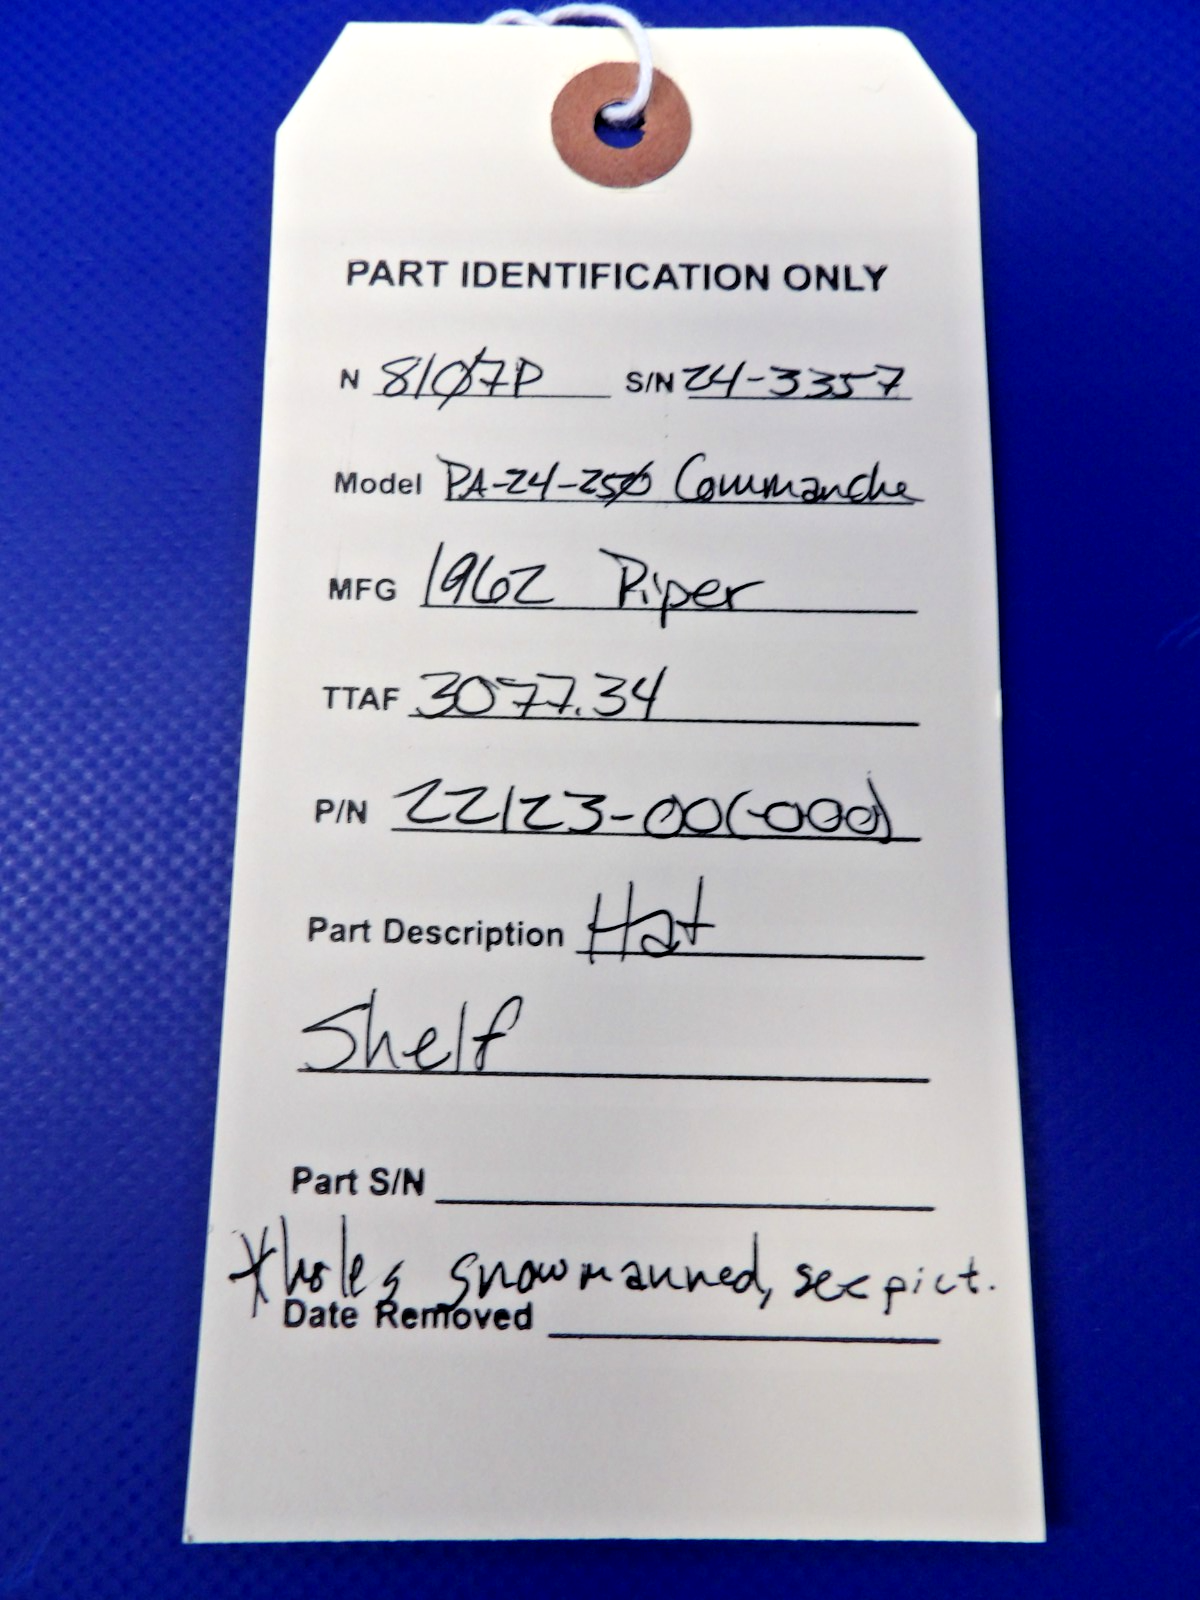 PART IDENTIFICATION ONLY
N 8107P S/N 24-3357
Model PA-24-250 Commanche
MFG 1962 Piper
TTAF 3077.34
P/N 22123-00(-000)
Part Description Hat
Shelf
Part S/N
*holes snowmanned, see pict.
Date Removed